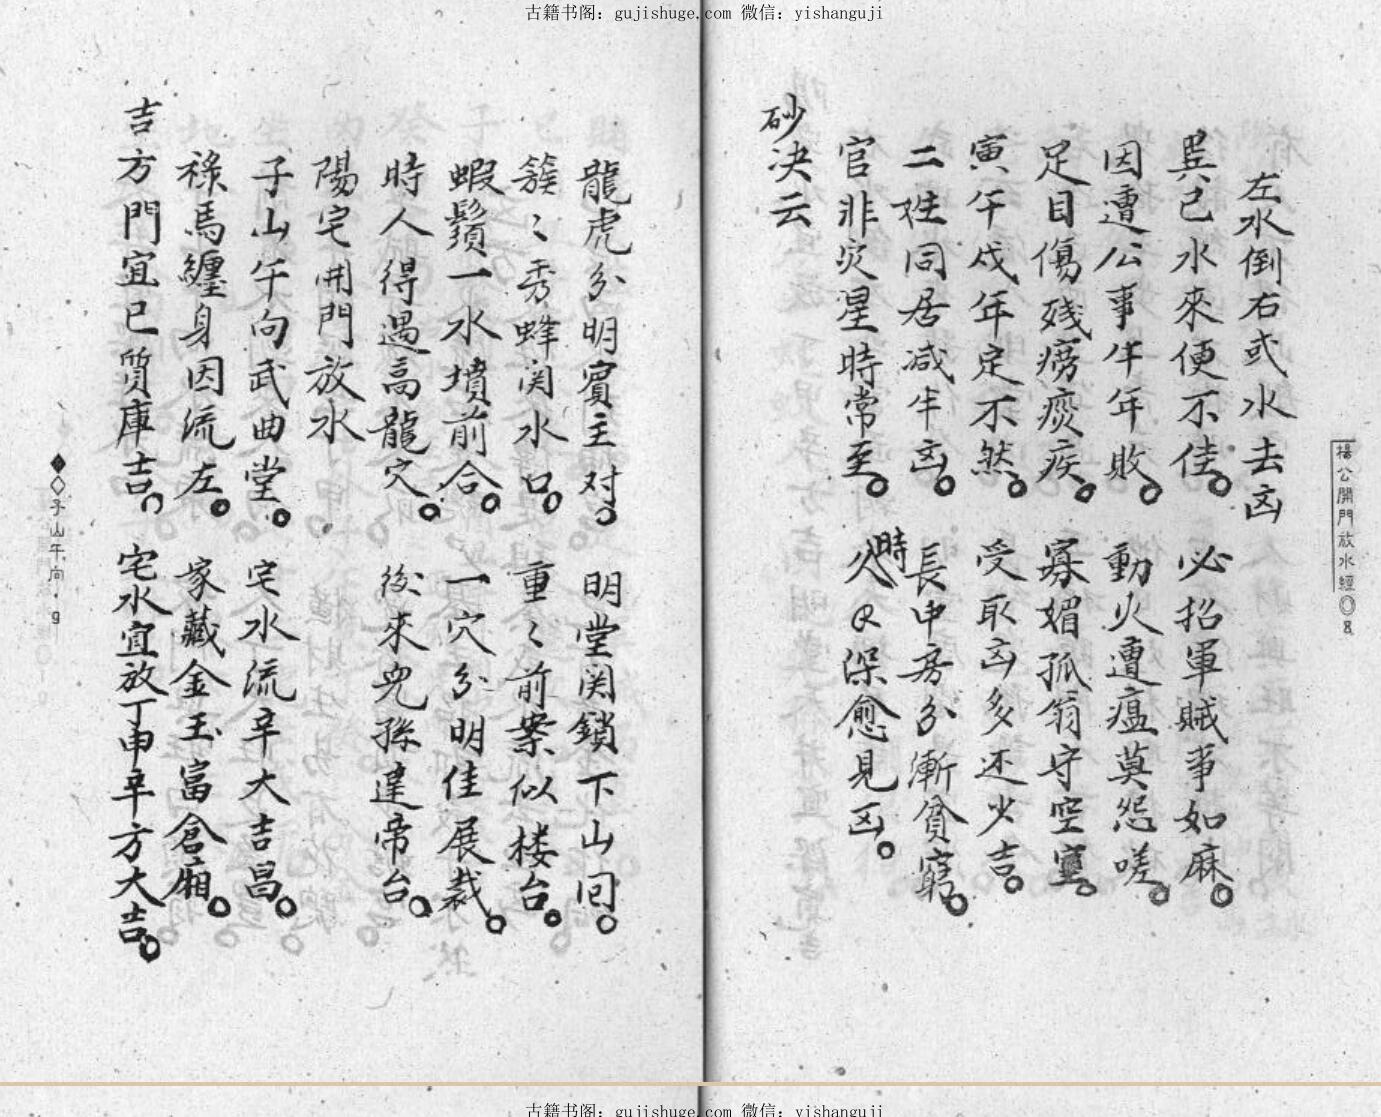 古籍书阁：gujishuge.com 微信：yishanguji
楊公開門放水經 8
左水倒右或水去凶
巽巳水來便不佳 必招軍賊事如麻
因遭公事牛年敗 動火遭瘟莫怨嗟
足目傷殘癆瘓疾 寡媚孤翁守空
寅午戌年定不然 受取凶多还少吉
二姓同居减半凶 長中房分漸貧窮
官非灾星時常至 久時深愈見凶
砂决云
龍虎分明賓主对 明堂関鎖下山回
簇〻秀蜂関水口 重〻前案似楼台
蝦鬚一水墳前合 一穴分明佳展裁
時人得遇高龍穴 後來兒孫達帝台
陽宅開門放水
子山午向武曲堂 宅水流辛大吉昌
祿馬纏身因流左 家藏金玉富倉廂
吉方門宜巳質庫吉 宅水宜放丁申辛方大吉
子山午向 9
古籍书阁：gujishuge.com 微信：yishanguji